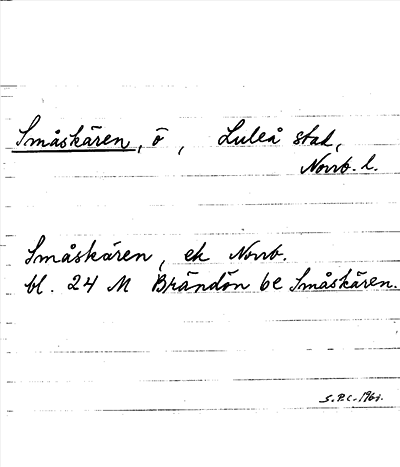 Småskären, ö, Luleå stad,
Norrb. l.
Småskären, ek Norrb.
bl. 24 M Brändön be Småskären.
S.P.C.